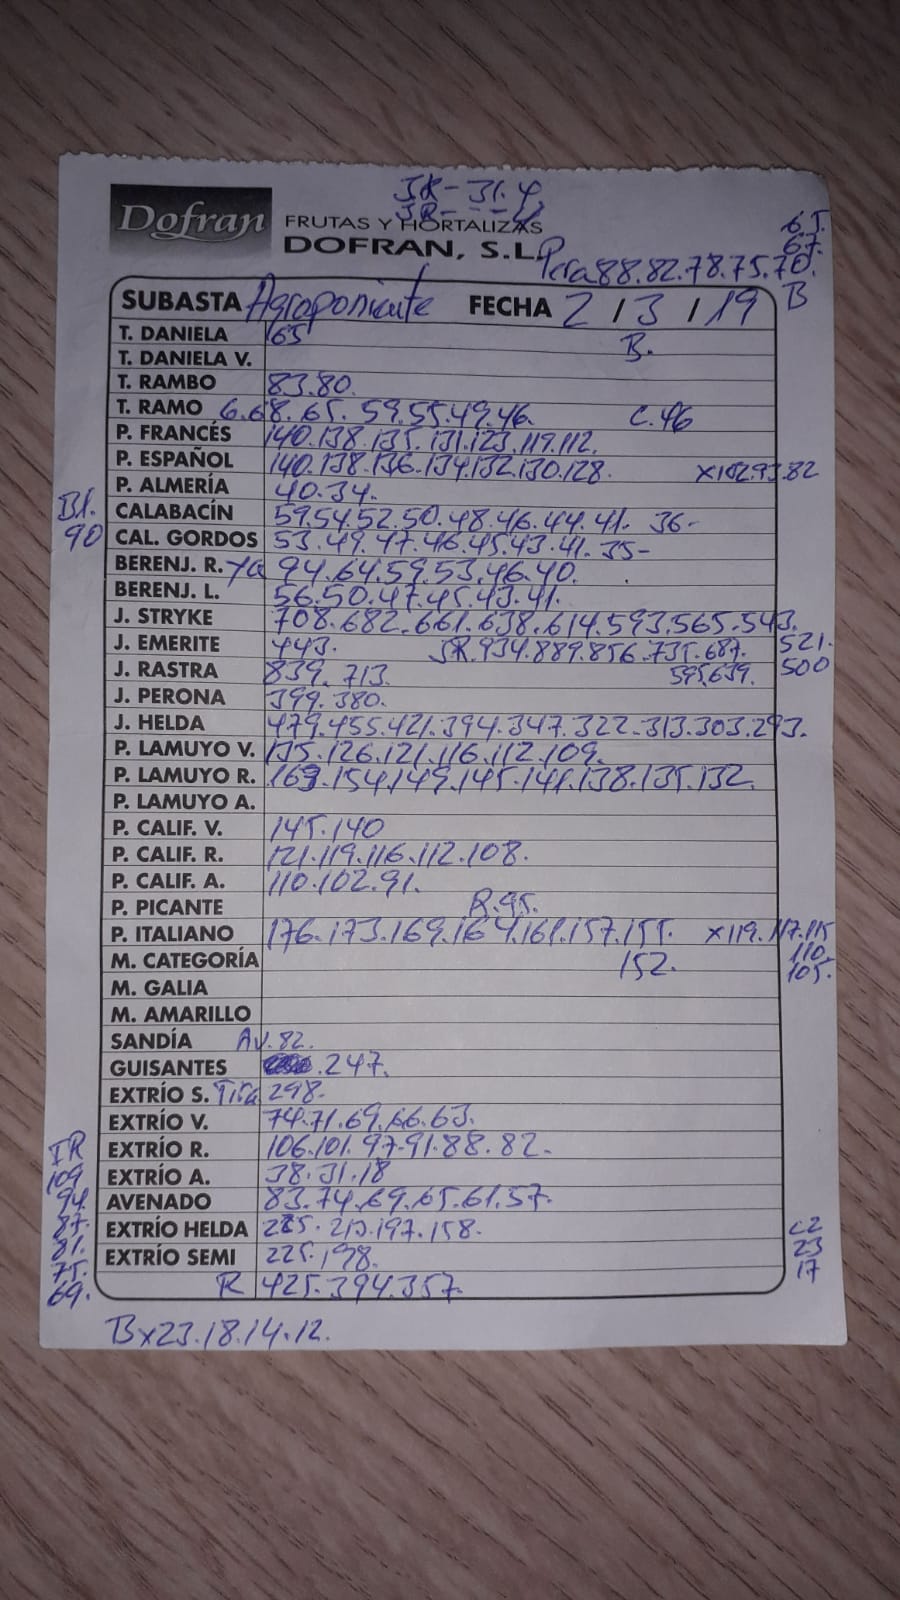 JK - 31.4
JR - - - 4
Dofran
FRUTAS Y HORTALIZAS
DOFRAN, S.L.
65.
67.
Pera 88.82.78.75.70.
SUBASTA Agroponiente FECHA 2/3/19 B
T. DANIELA 65 B.
T. DANIELA V.
T. RAMBO 83.80.
T. RAMO 6.68.65.59.55.49.46. C.46
P. FRANCÉS 140.138.135.131.123.119.112.
P. ESPAÑOL 140.138.136.134.132.130.128. x102.93.82
P. ALMERÍA 40.34.
Bl. CALABACÍN 59.54.52.50.48.46.44.41. 36-
90 CAL. GORDOS 53.49.47.46.45.43.41.35-
BERENJ. R. 94.64.59.53.46.40.
BERENJ. L. 56.50.47.45.43.41.
J. STRYKE 708.682.661.638.614.593.565.543.
J. EMERITE 443. JR.934.889.856.735.687. 521.
J. RASTRA 839.713. 595.639. 500
J. PERONA 399.380.
J. HELDA 479.455.421.394.347.322.313.303.293.
P. LAMUYO V. 135.126.121.116.112.109.
P. LAMUYO R. 169.154.149.145.141.138.135.132.
P. LAMUYO A.
P. CALIF. V. 145.140
P. CALIF. R. 121.119.116.112.108.
P. CALIF. A. 110.102.91.
P. PICANTE R.95.
P. ITALIANO 176.173.169.164.161.157.155. x119.117.115
M. CATEGORÍA 152. 110.
105.
M. GALIA
M. AMARILLO
SANDÍA Av.82.
GUISANTES .247.
EXTRÍO S. Tira 298.
EXTRÍO V. 74.71.69.66.63.
IR EXTRÍO R. 106.101.97.91.88.82.
109 EXTRÍO A. 38.31.18
94. AVENADO 83.74.69.65.61.57.
87. EXTRÍO HELDA 225.210.197.158. C2
81. EXTRÍO SEMI 225.198. 23
75. R 425.394.357. 17
69.
Bx23.18.14.12.